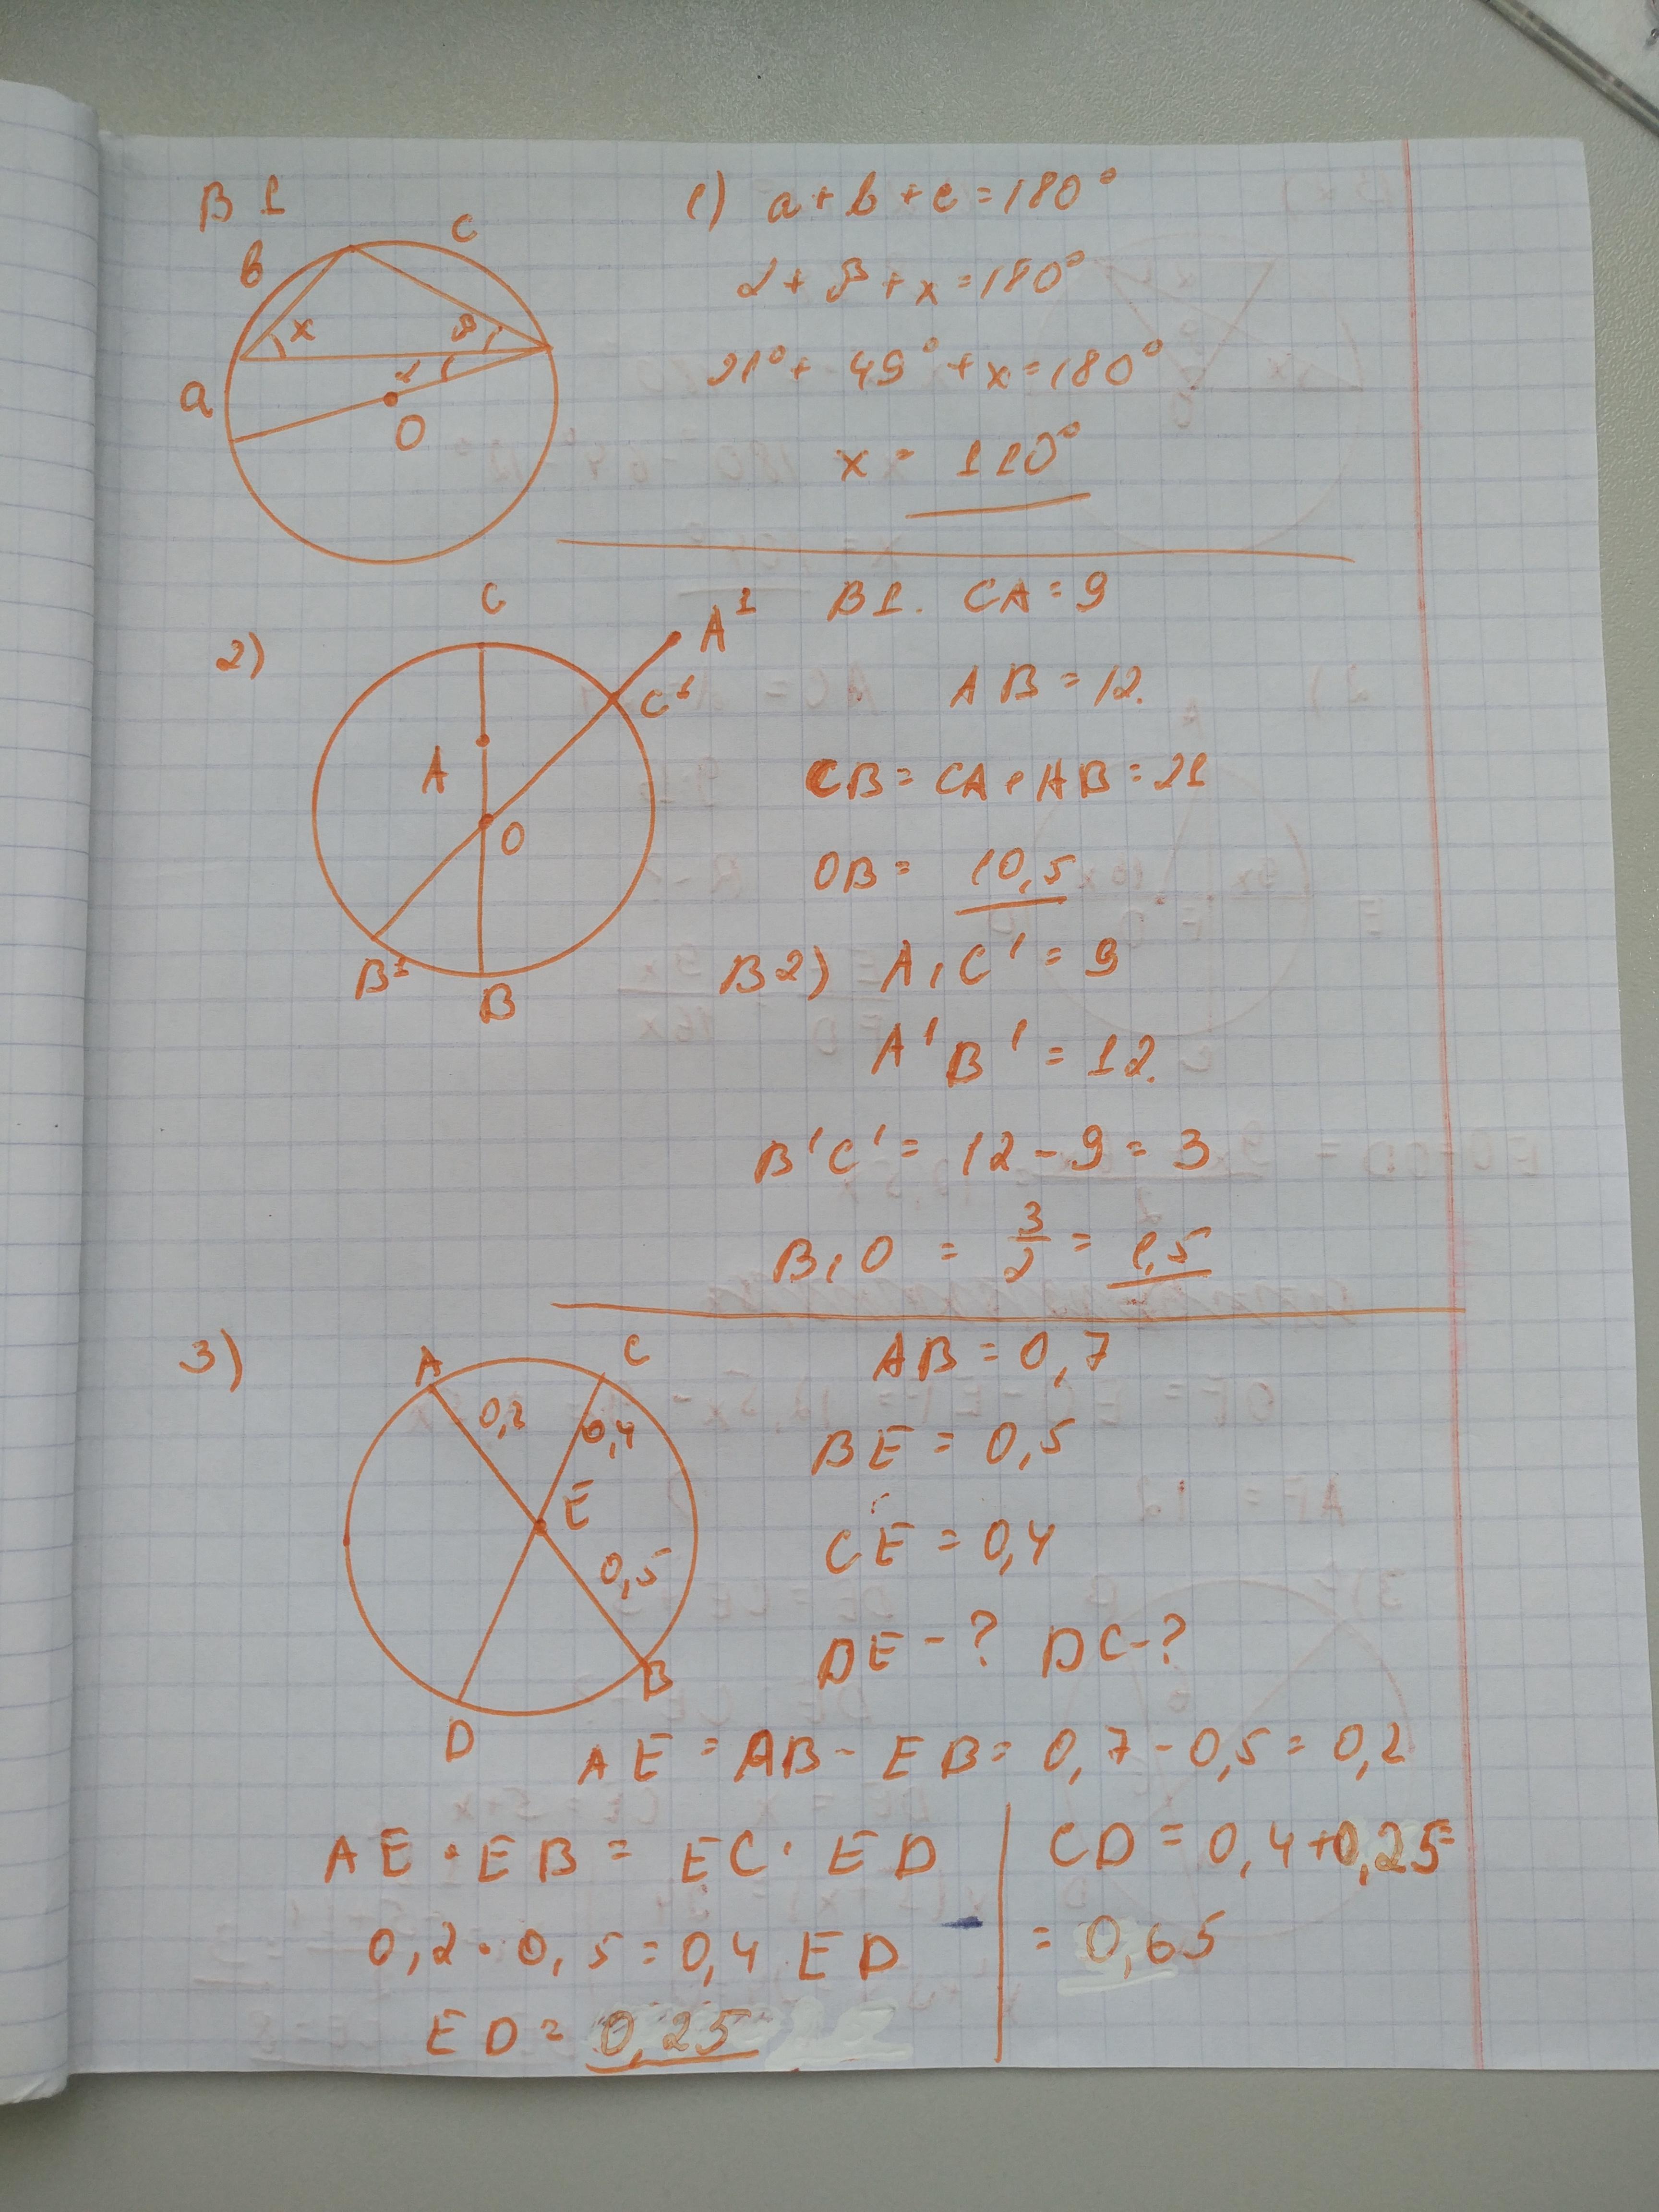 В 1
1) a + b + c = 180°
b
c
α + β + x = 180°
x
β
21° + 49° + x = 180°
α
a
O
x = 110°
2)
C
A¹
В1. CA = 9
C¹
AB = 12.
A
CB = CA + AB = 21
O
OB = 10,5
В2) A₁C' = 9
B¹
B
A'B' = 12.
B'C' = 12 - 9 = 3
B₁O = 3/2 = 1,5
3)
A
C
AB = 0,7
0,2
0,4
BE = 0,5
E
CE = 0,4
0,5
DE - ? DC - ?
B
D
AE = AB - EB = 0,7 - 0,5 = 0,2
AE · EB = EC · ED
CD = 0,4+0,25=
0,2 · 0,5 = 0,4 ED
= 0,65
ED = 0,25